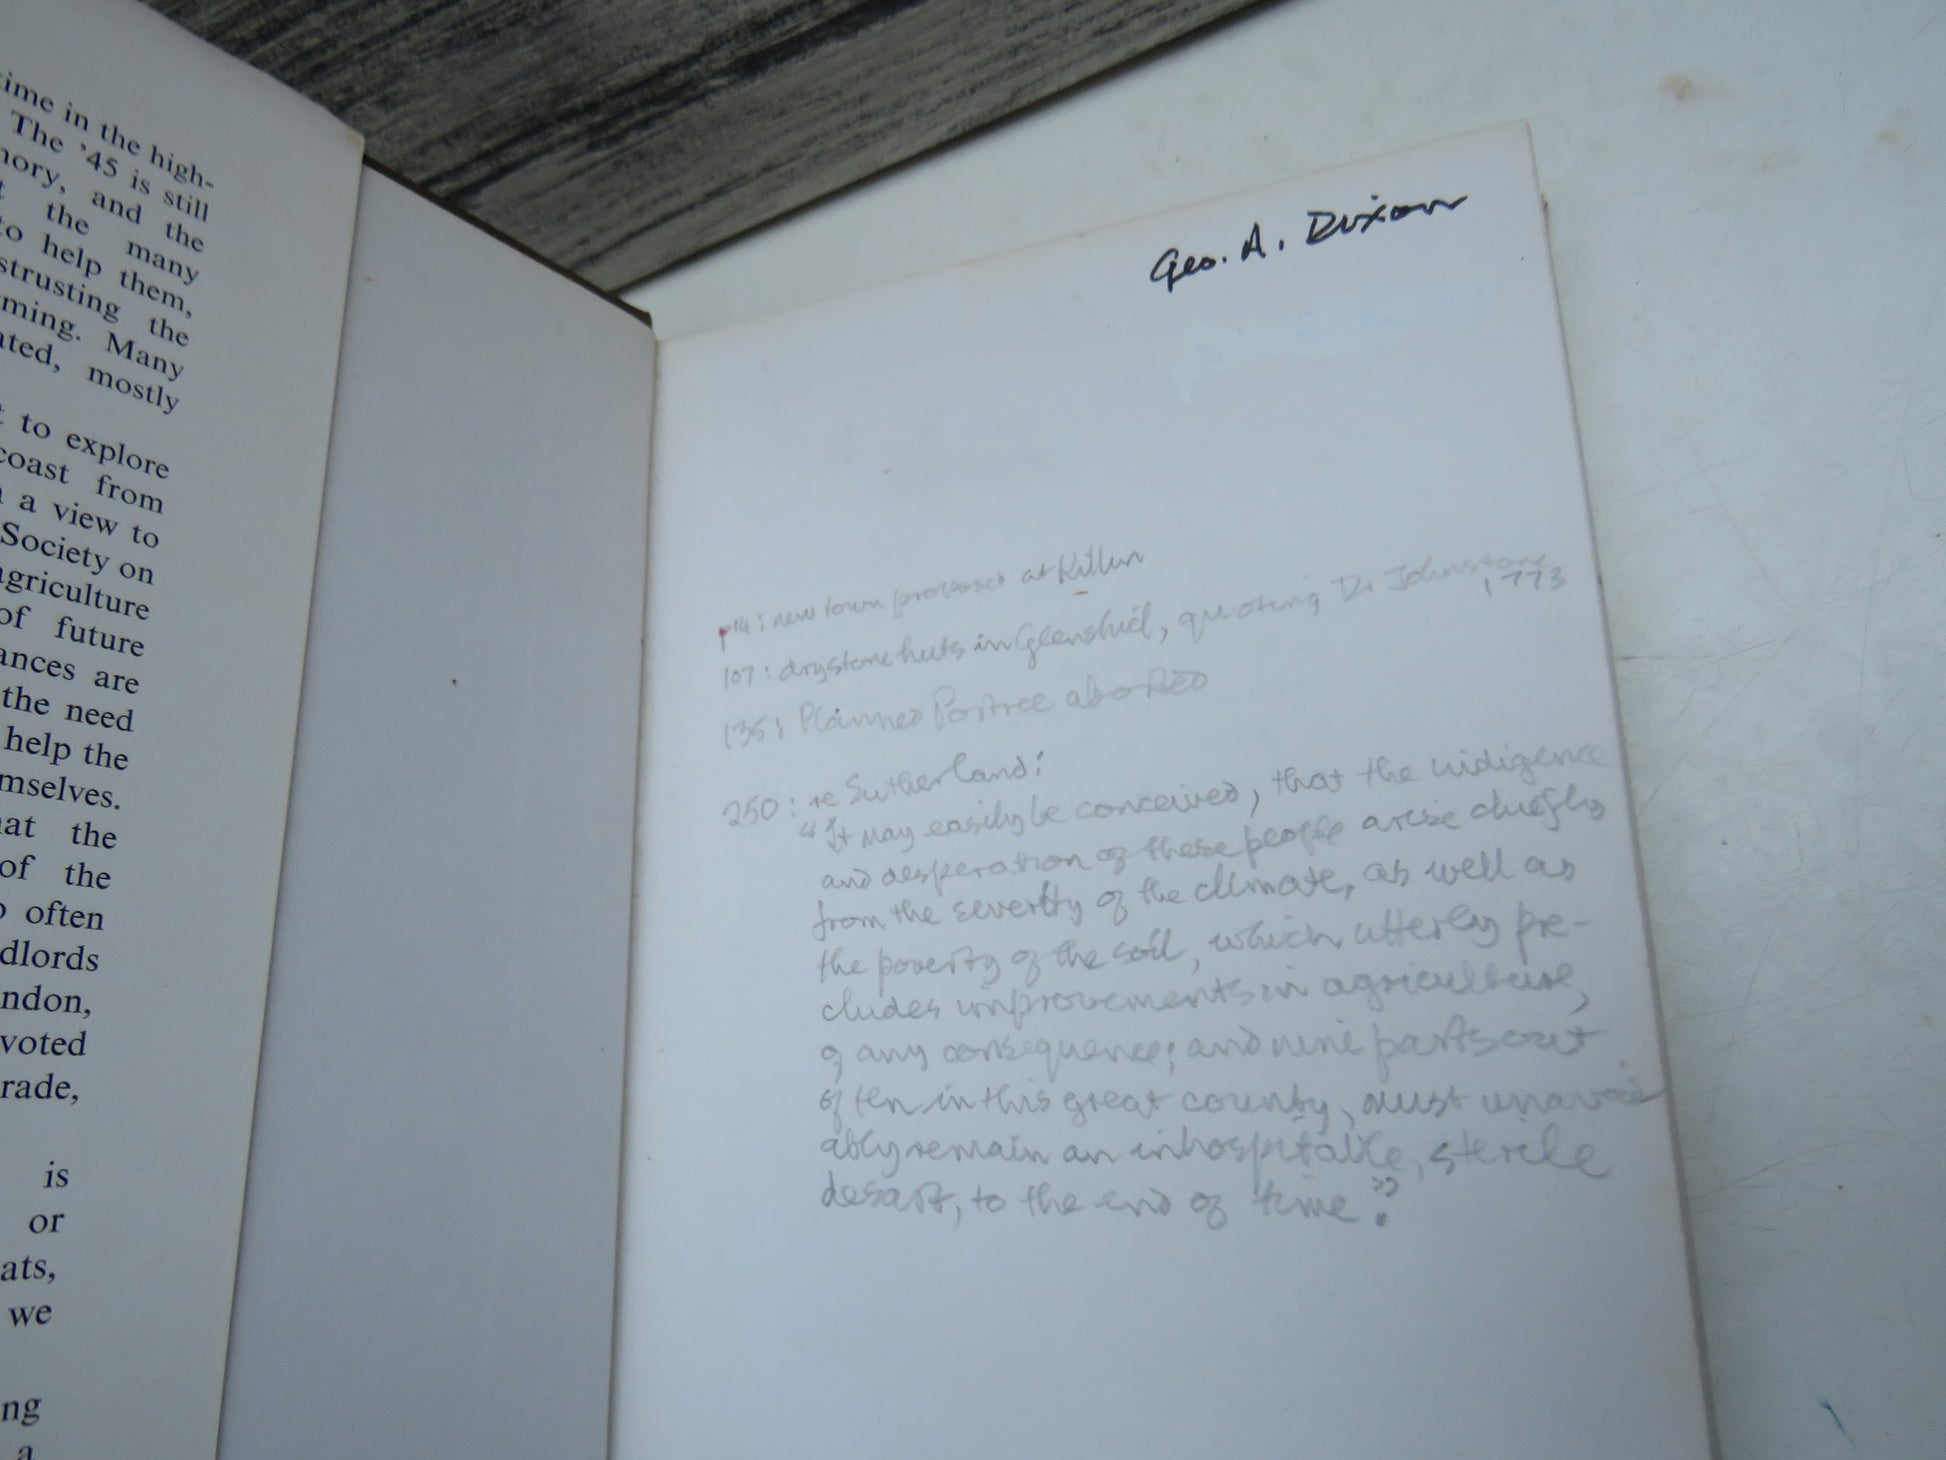 ime in the high-
The '45 is still
ory, and the
the many
to help them,
strusting the
ming. Many
ated, mostly
to explore
coast from
a view to
Society on
agriculture
of future
ances are
the need
help the
mselves.
at the
of the
often
dlords
ndon,
voted
rade,
is
or
ats,
we
ng
a
Geo. A. Dixon
p14: new town proposed at Killin
107: drystone huts in Glenshiel, quoting Dr Johnstone
1773
135: Planned Portree aborted
250: re Sutherland:
"It may easily be conceived, that the indigence
and desperation of these people arise chiefly
from the severity of the climate, as well as
the poverty of the soil, which utterly pre-
cludes improvements in agriculture,
of any consequence; and nine parts out
of ten in this great county, must unavoid
ably remain an inhospitable, sterile
desart, to the end of time".